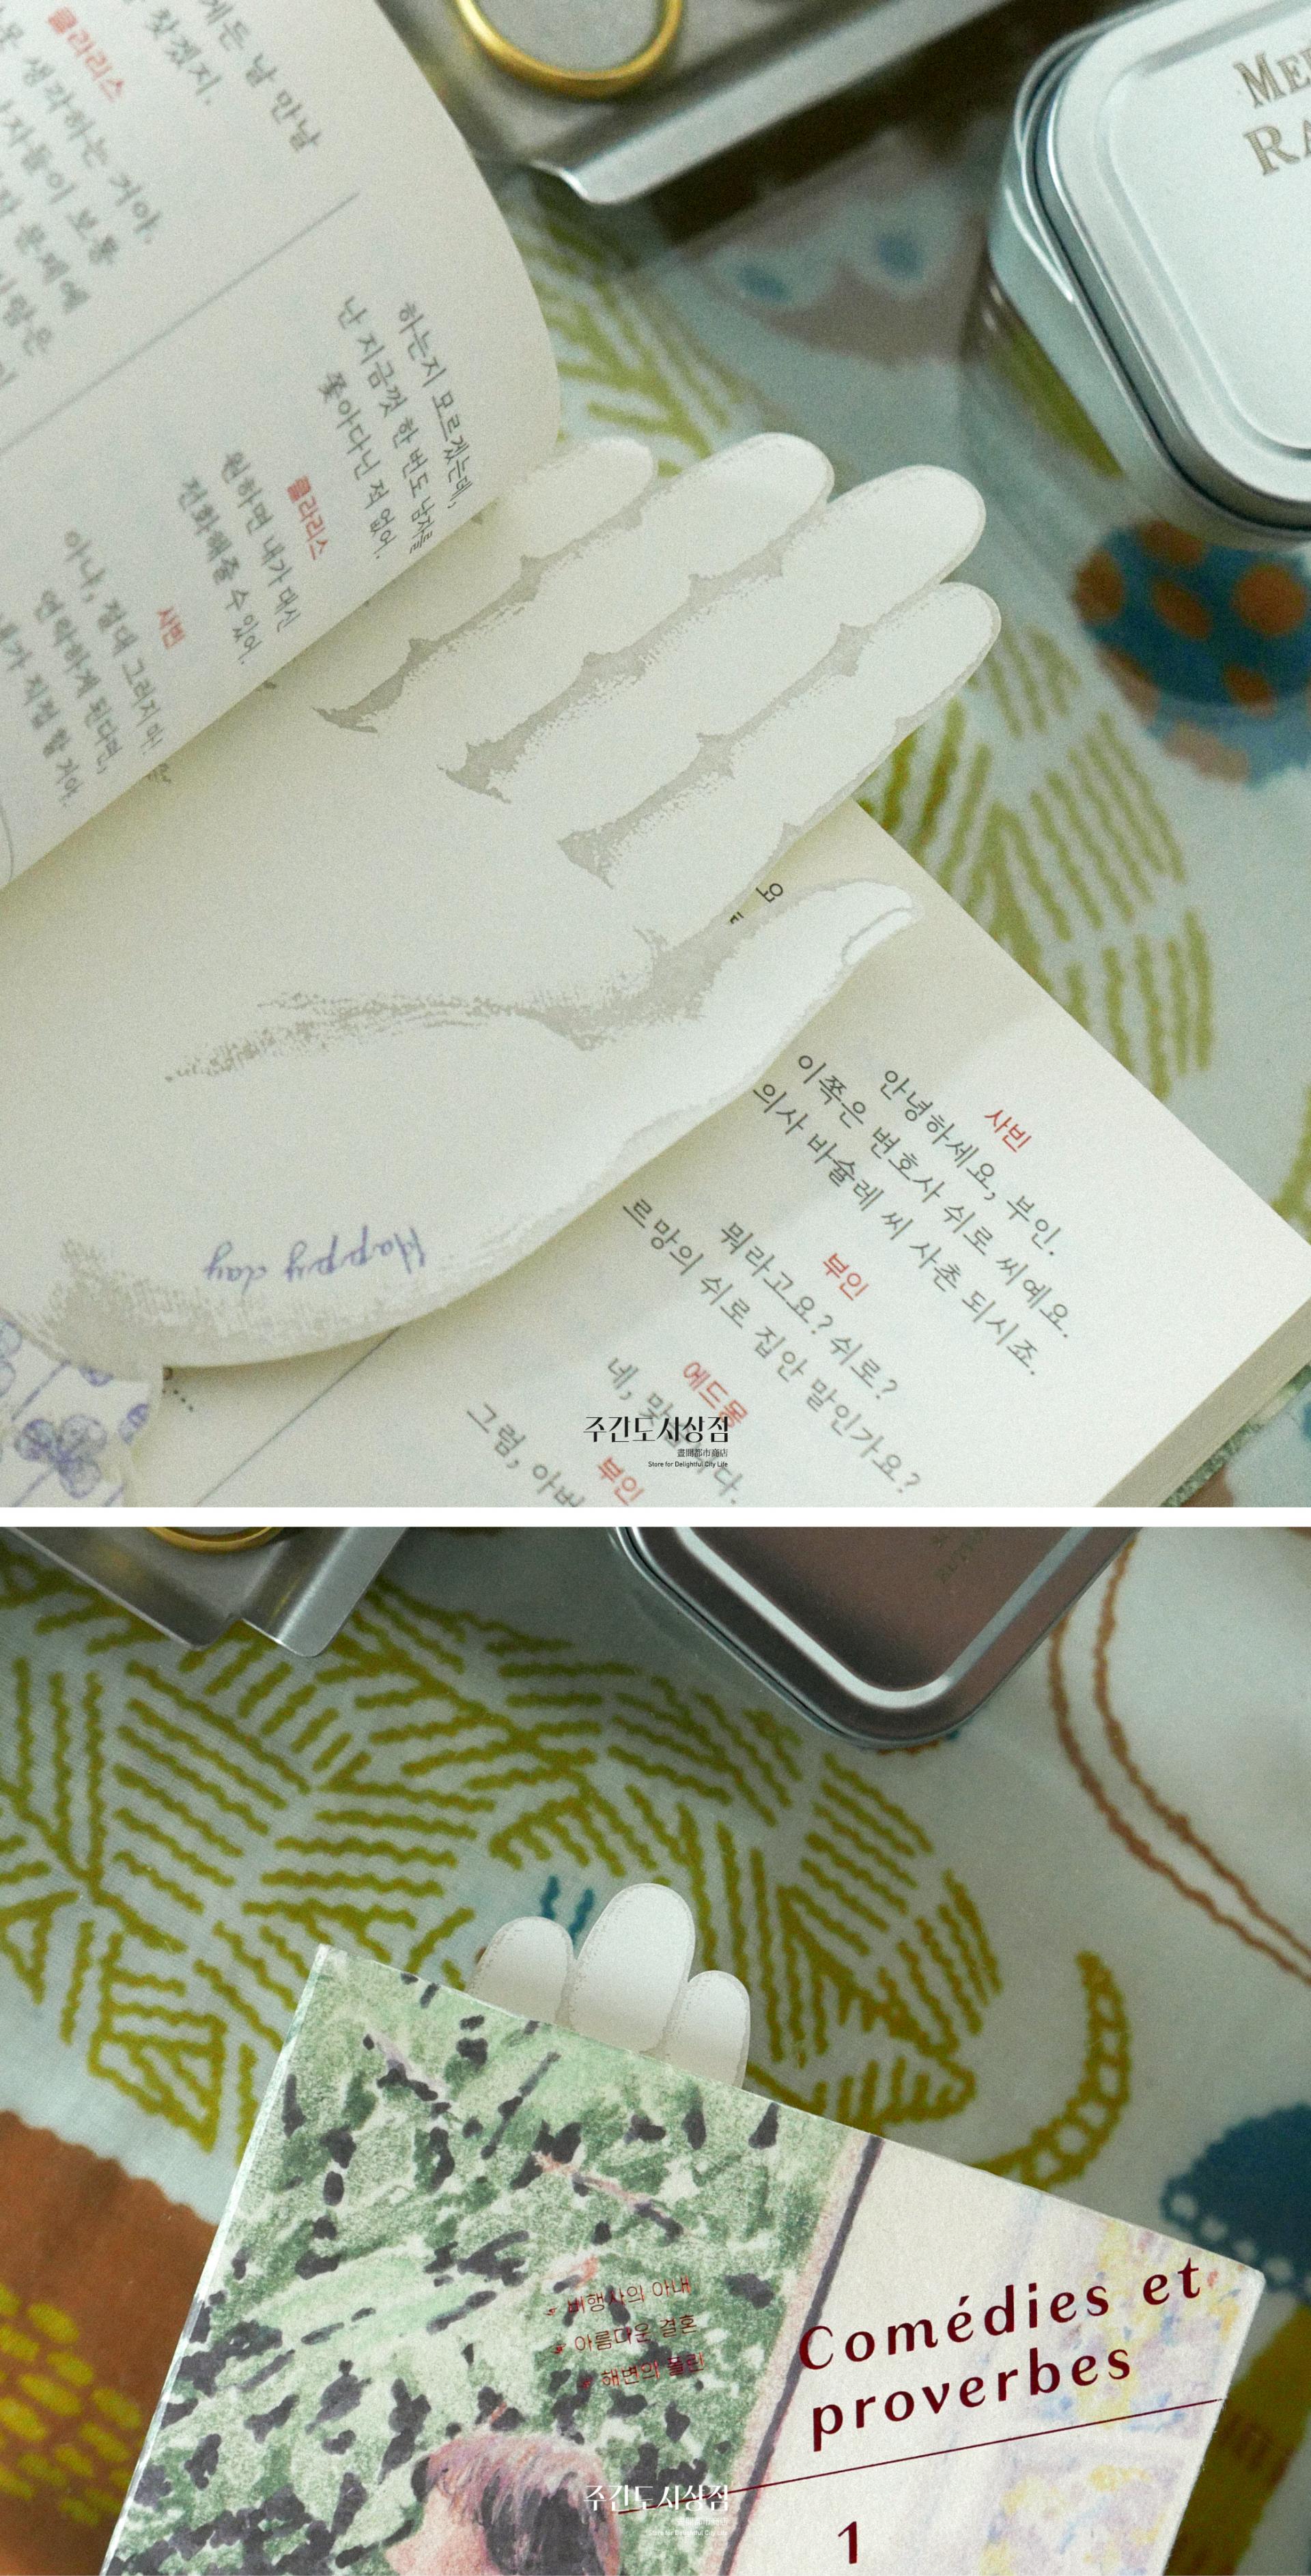 게든 날 만날
찾겠지.
클라리스
생각하는 거야.
자들이 보통
문제에
하는지 모르겠는데,
난 지금껏 한 번도 남자를
쫓아다닌 적 없어.
클라리스
원하면 내가 대신
전화해줄 수 있어.
사빈
아냐, 절대 그러지 마.
연락하게 된다면,
내가 직접 할 거야.
MEI
RA
요
Happy day
사빈
안녕하세요, 부인.
이쪽은 변호사 쉬로 씨예요.
의사 바슐레 씨 사촌 되시죠.
부인
뭐라고요? 쉬로?
르망의 쉬로 집안 말인가요?
에드몽
네,
부인
그럼, 아버
주간도시상점
晝間都市商店
Store for Delightful City Life
비행사의 아내
아름다운 결혼
해변의 폴린
Comédies et
proverbes
1
주간도시상점
晝間都市商店
Store for Delightful City Life